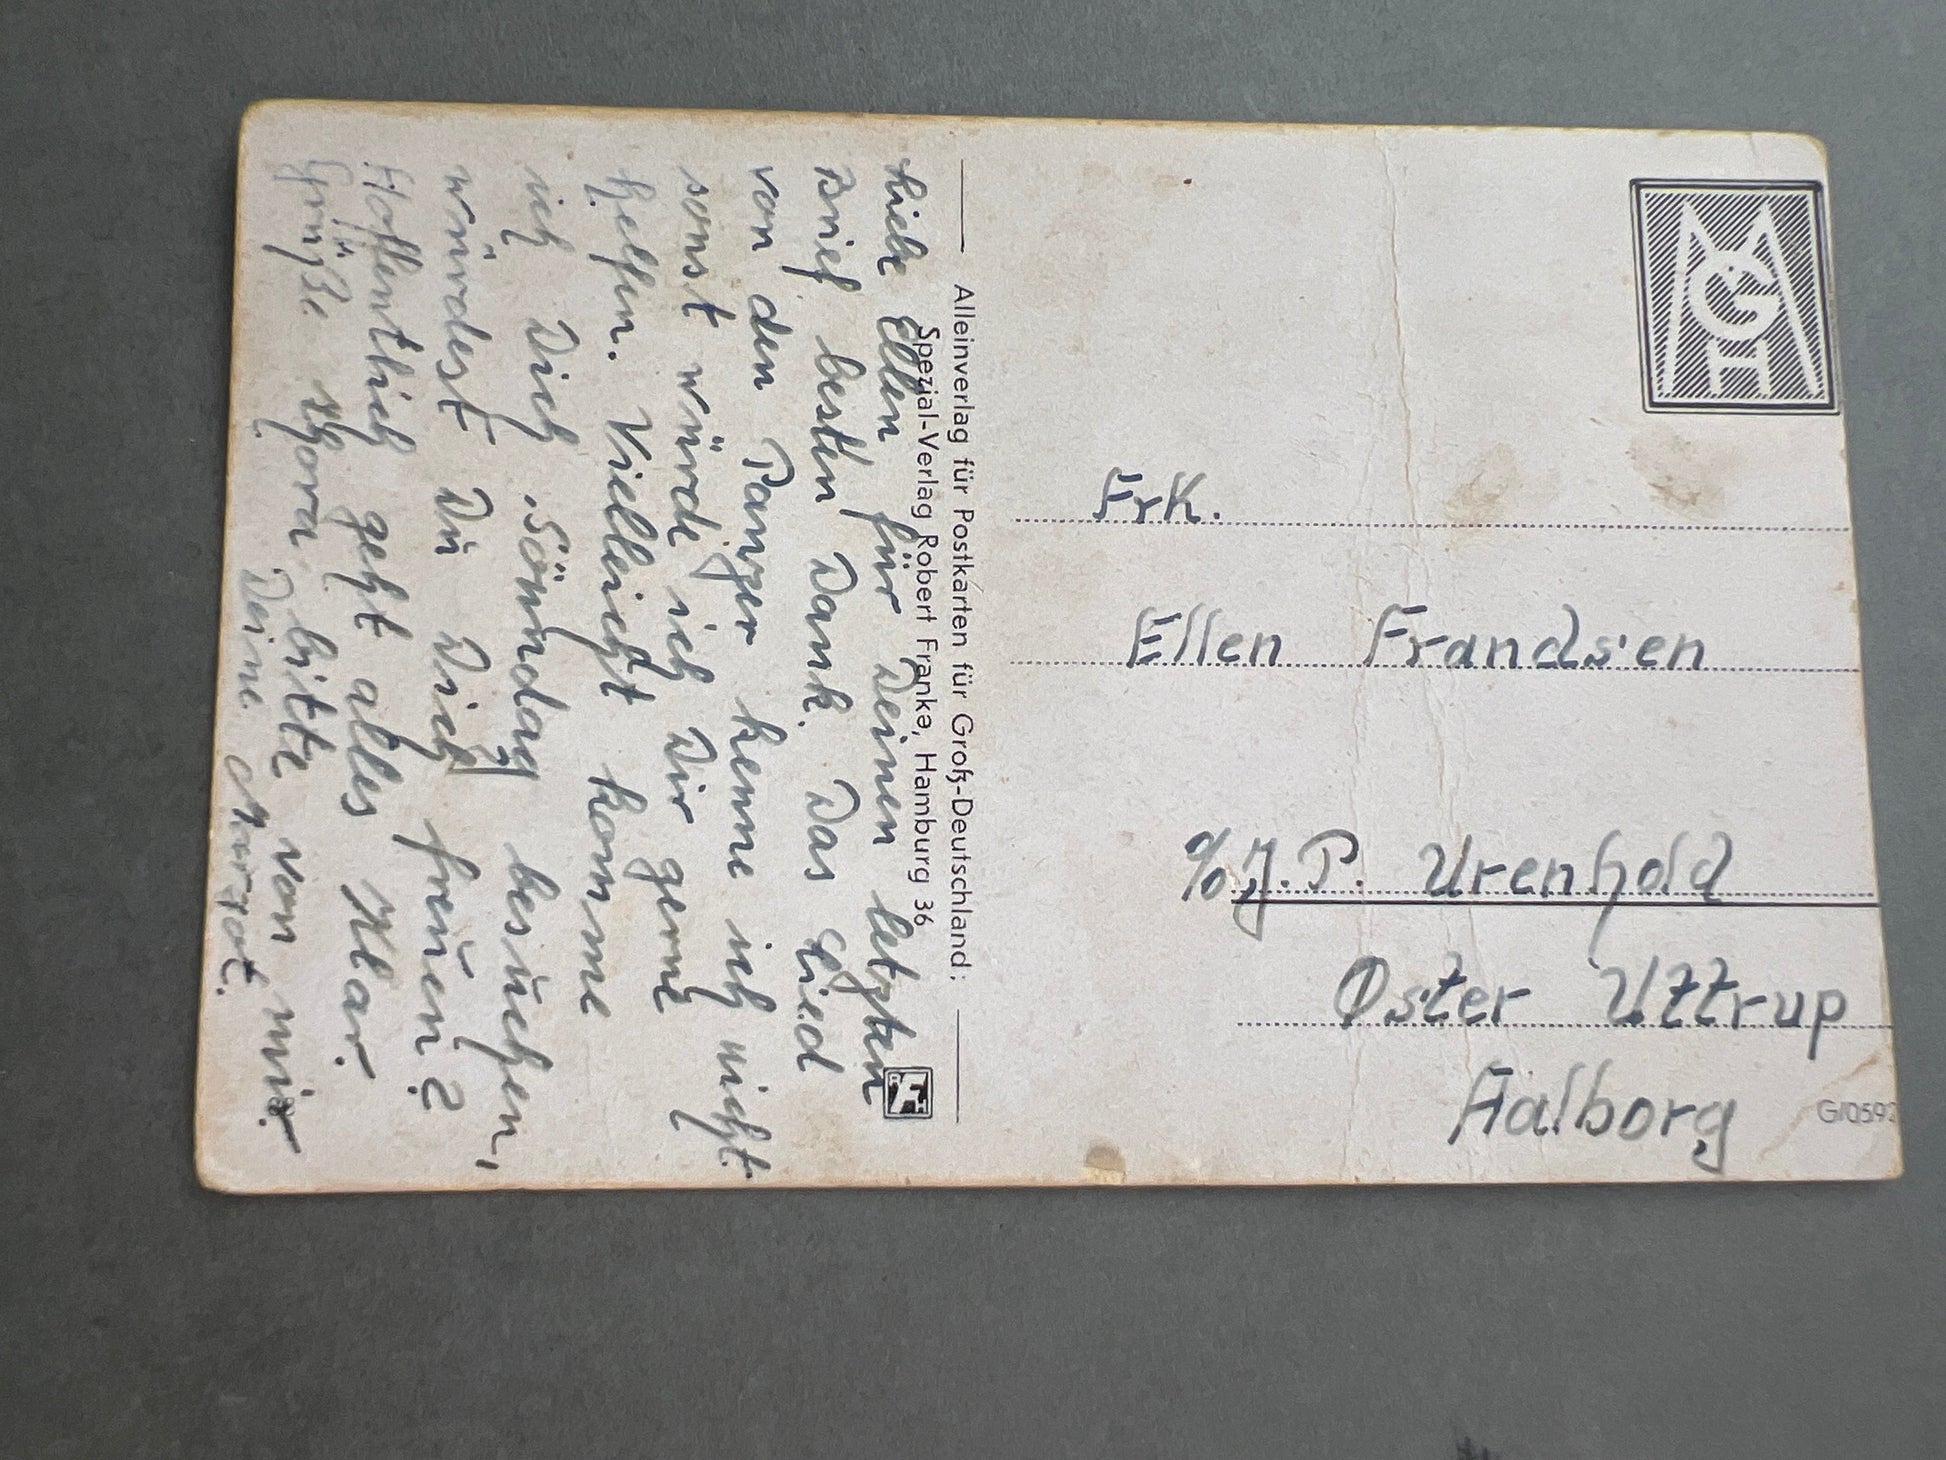 Liebe Ellen für Deinen letzten
Brief besten Dank. Das Lied
von den Panzer kenne ich nicht.
sonst würde ich Dir gerne
helfen. Vielleicht komme
ich Dich "Sönndag" besuchen,
würdest Du Dich freuen?
Hoffentlich geht alles Klar.
Grüße Thora bitte von mir.
Deine Margot.
Alleinverlag für Postkarten für Groß-Deutschland:
Spezial-Verlag Robert Franke, Hamburg 36
MGH
Frk.
Ellen Frandsen
% J. P. Urenhold
Øster Uttrup
Aalborg
G/0592